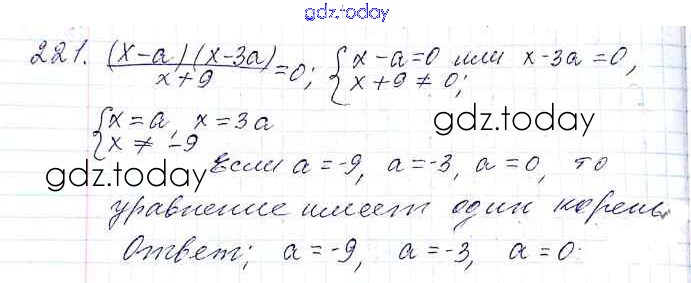 gdz.today
221. (x-a)(x-3a)/x+9 =0; { x-a=0 или x-3a=0,
x+9≠0;
{ x=a, x=3a
x ≠ -9
gdz.today
Если a=-9, a=-3, a=0, то
gdz.today
уравнение имеет один корень.
Ответ; a=-9, a=-3, a=0.